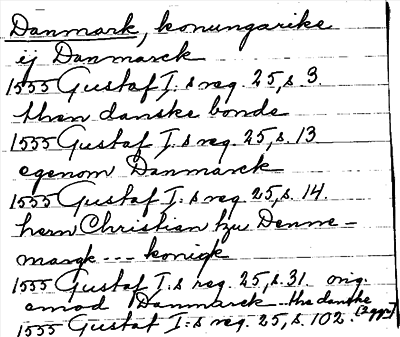 Danmark, konungarike
ij Danmarck
1555 Gustaf I:s reg. 25, s. 3.
then danske bonde
1555 Gustaf I:s reg. 25, s. 13
egenom Danmarck
1555 Gustaf I:s reg. 25, s. 14.
hern Christian tzu Denne-
margk --- konigk
1555 Gustaf I:s reg. 25, s. 31. orig.
emod Danmarck - the danske
1555 Gustaf I:s reg. 25, s. 102.